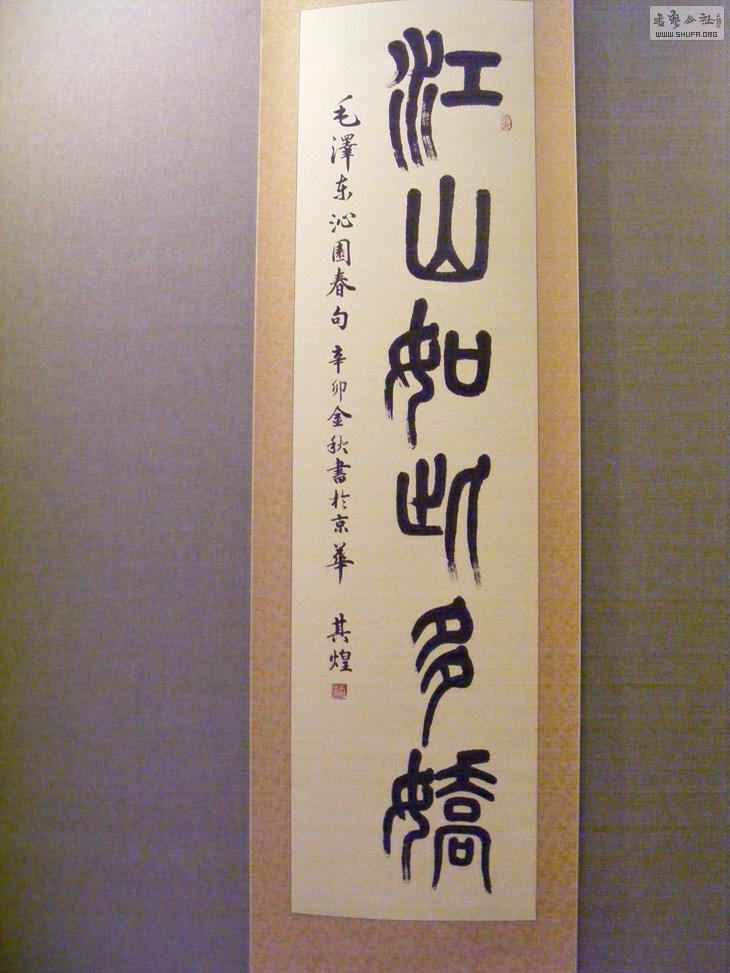 江山如此多嬌
毛澤东沁園春句 辛卯金秋書於京華 其煌
WWW.SHUFA.ORG